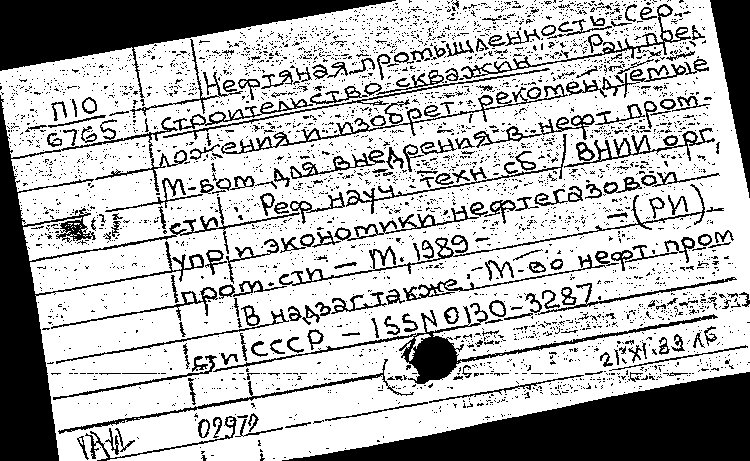 Нефтяная промышленность. Сер.
П10
6765
"строительство скважин": Рац. пред
ложения и изобрет., рекомендуемые
М-вом для внедрения в нефт. пром-
сти: Реф. науч. техн. сб. / ВНИИ орг.,
упр. и экономики нефтегазовой
пром-сти — М., 1989 - — (РИ).
В надзаг. также: М-во нефт. пром
сти СССР. — ISSN 0130-3287.
21.XI.89
02972